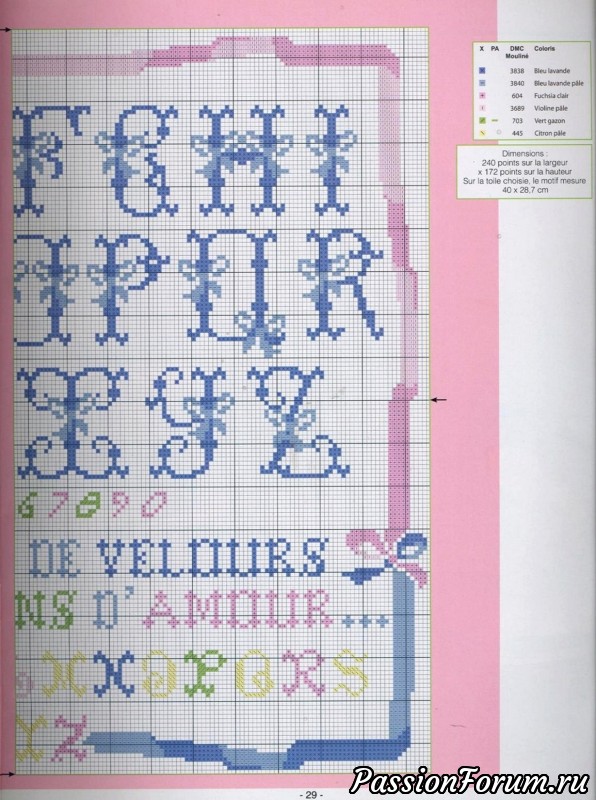 F G H I
X PA DMC Mouliné Coloris
3838 Bleu lavande
3840 Bleu lavande pâle
604 Fuchsia clair
3689 Violine pâle
703 Vert gazon
445 Citron pâle
Dimensions :
240 points sur la largeur
x 172 points sur la hauteur
Sur la toile choisie, le motif mesure
40 x 28,7 cm
P Q R
X Y Z
6 7 8 9 0
DE VELOURS
NS D'AMOUR...
M N O P Q R S
Y Z
- 29 -
PassionForum.ru